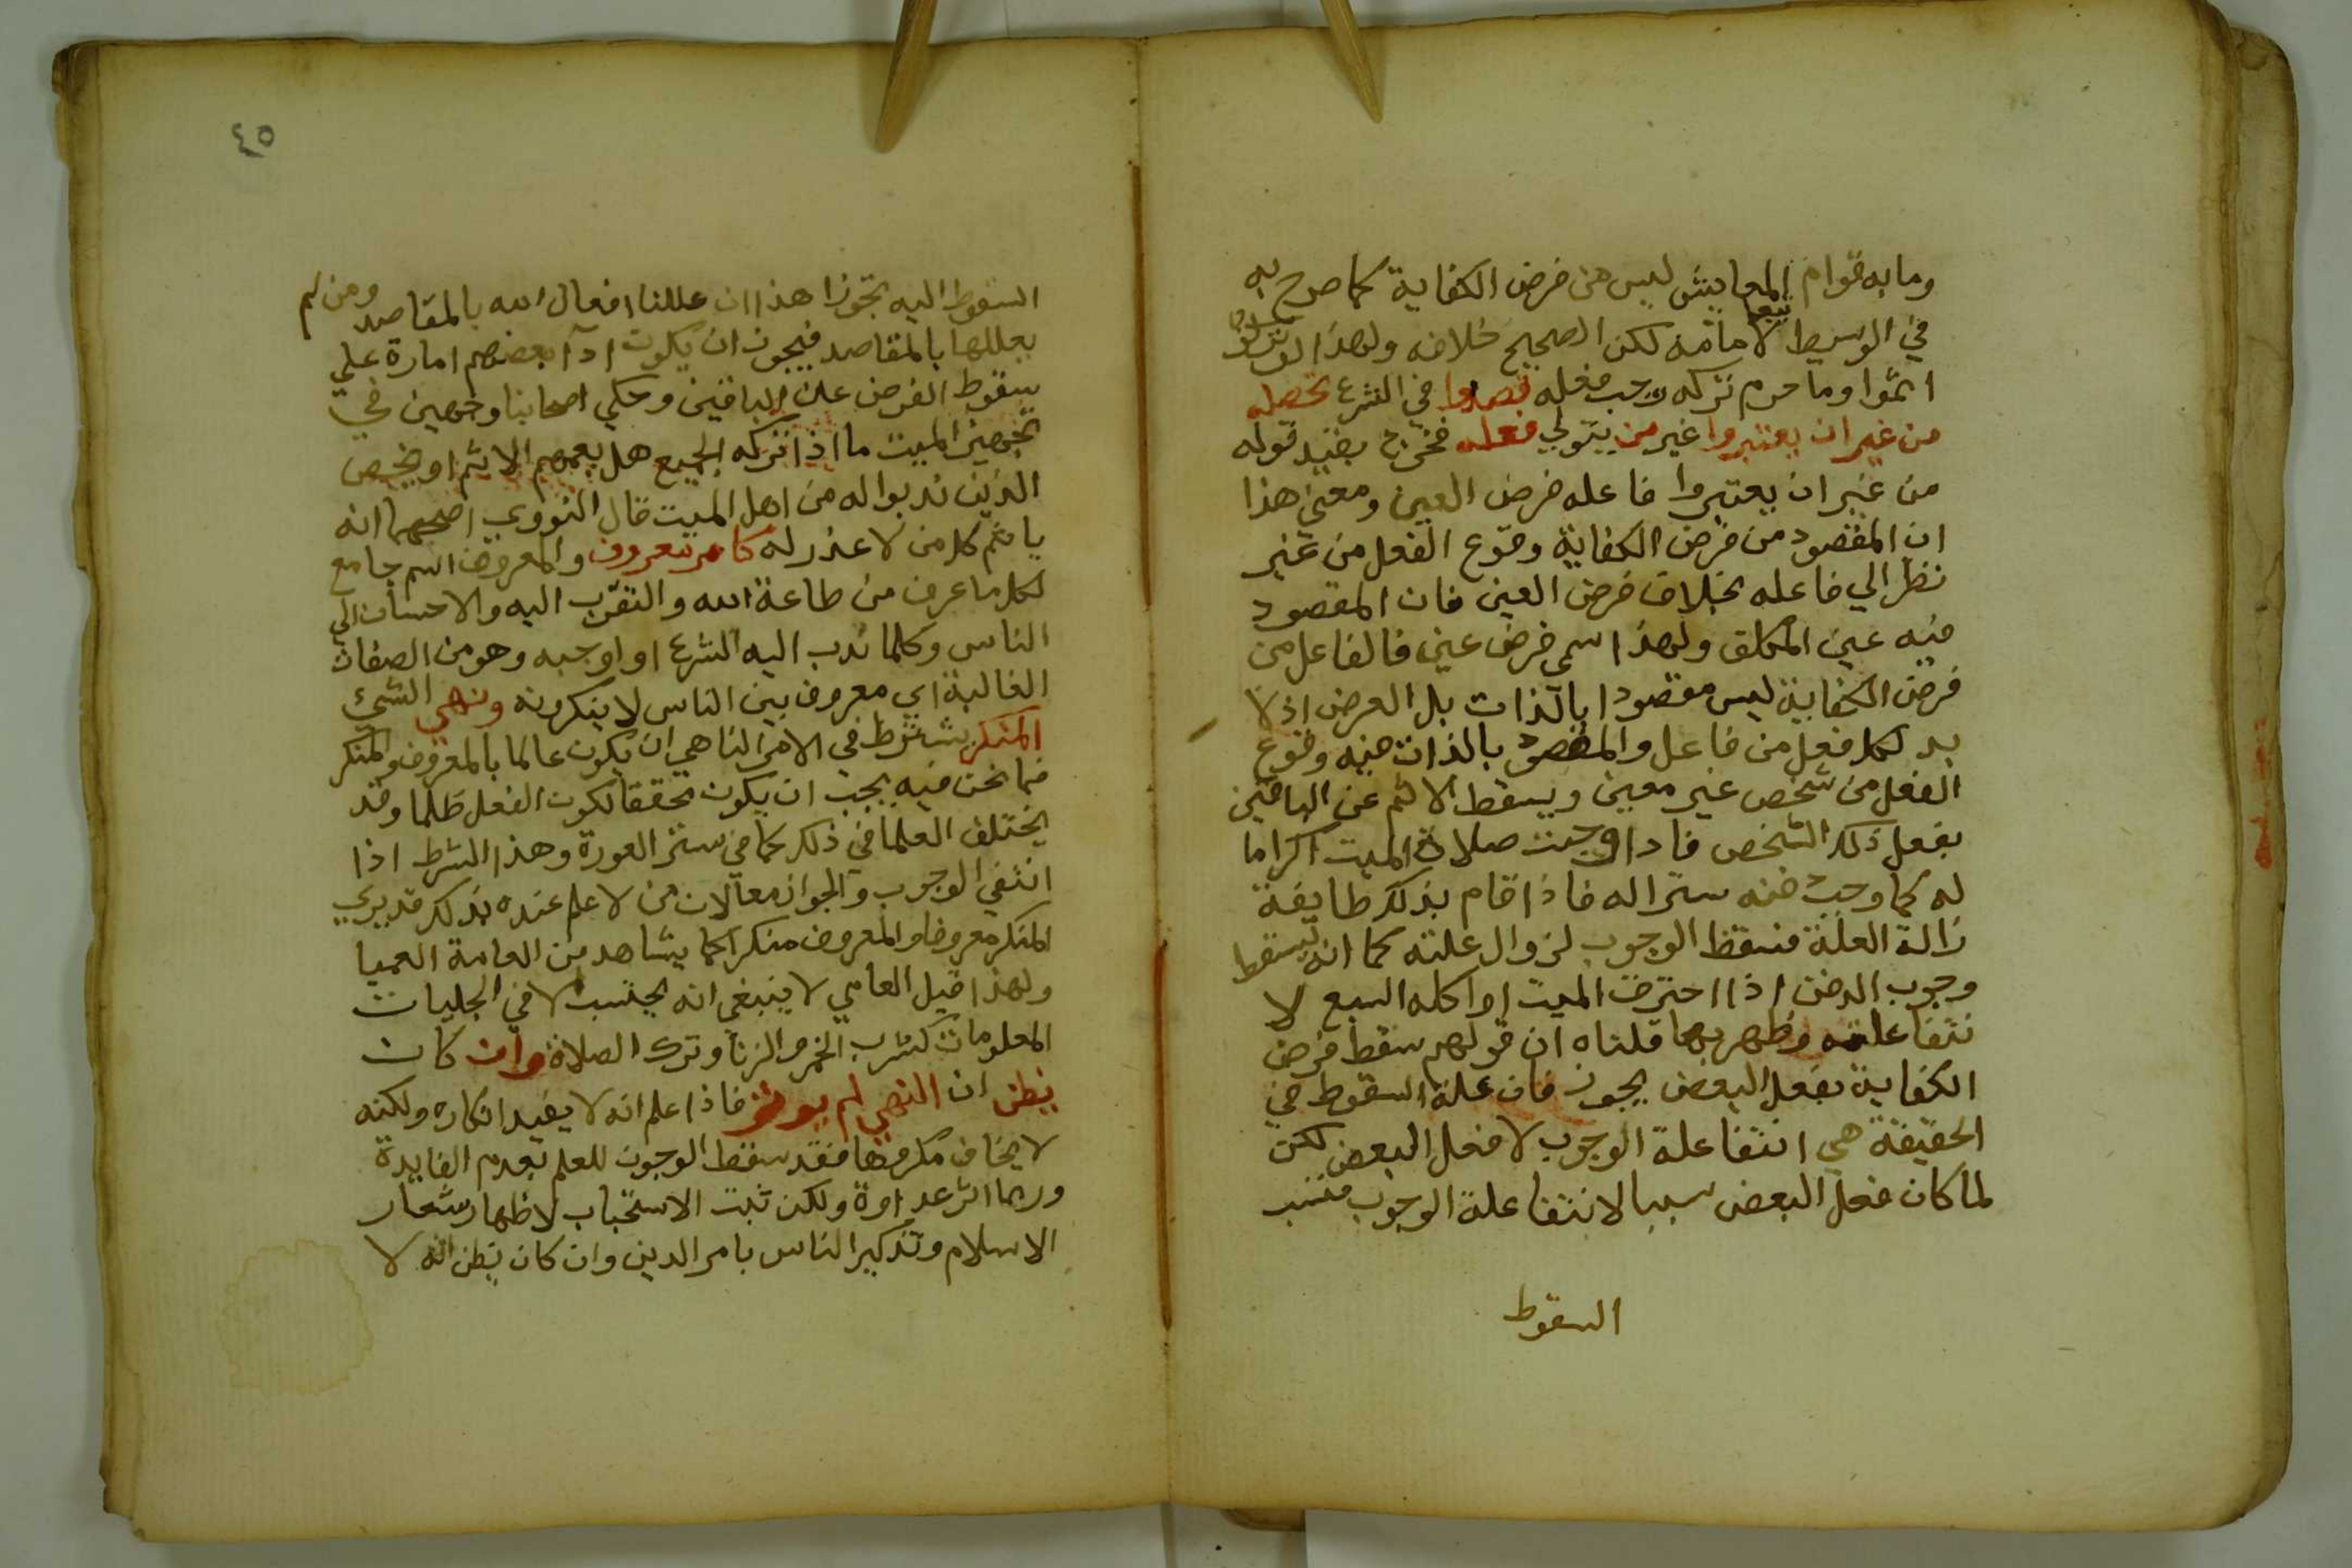 وما به قوام المعايش ليس من فرض الكفاية كما صرح به
في الوسيط تبعا لامامه لكن الصحيح خلافه ولهذا لو تركوا
اثموا وما حرم تركه وجب فعله قصدوا في الشرع تحصله
من غير ان يعتبروا غير من يتولي فعله فخرج بقيد قوله
من غير ان يعتبروا فاعله فرض العين ومعني هذا
ان المقصود من فرض الكفاية وقوع الفعل من غير
نظر الي فاعله بخلاف فرض العين فان المقصود
منه عين المكلف ولهذا سمي فرض عين فالفاعل من
فرض الكفاية ليس مقصودا بالذات بل العرض اذ لا
بد لكل فعل من فاعل والمقصود بالذات منه وقوع
الفعل من شخص غير معين ويسقط الاثم عن الباقين
بفعل ذلك الشخص فاذا وجبت صلاة الميت اكراما
له كما وجب دفنه سترا له فاذا قام بذلك طايفة
زالة العلة فسقط الوجوب لزوال علته كما انه يسقط
وجوب الدفن اذا احترق الميت او اكله السبع لا
نتفا علته وظهر بها قلناه ان قولهم سقط فرض
الكفاية بفعل البعض يجوز فان علة السقوط في
الحقيقة هي انتفا علة الوجوب لا فعل البعض لكن
لما كان فعل البعض سببا لانتفا علة الوجوب فنسب
السقوط
٤٥
السقوط اليه تجوزا هذا ان عللنا افعال الله بالمقاصد ومن لم
يعللها بالمقاصد فيجوز ان يكون اداء بعضهم امارة علي
سقوط الفرض علي الباقين وحكي اصحابنا وجهين في
تجهيز الميت ما اذا تركه الجميع هل يعمهم الاثم او يختص
الذين ندبوا له من اهل الميت قال النووي اصحهما انه
ياثم كل من لا عذر له كامر بمعروف والمعروف اسم جامع
لكل ما عرف من طاعة الله والتقرب اليه والاحسان الي
الناس وكلما ندب اليه الشرع او اوجبه وهو من الصفات
الغالبة اي معروف بين الناس لا ينكرونه ونهي الشيء
المنكر يشترط في الامر الناهي ان يكون عالما بالمعروف والمنكر
فما نحن فيه يجب ان يكون محققا لكون الفعل ظلما وقد
يختلف العلما في ذلك كما في ستر العورة وهذا الشرط اذا
انتفي الوجوب والجواز معا لان من لا علم عنده بذلك قد يري
المنكر معروفا والمعروف منكرا كما يشاهد من العامة العميا
ولهذا قيل العامي لا ينبغي انه يحتسب الا في الجليات
المعلومات كشرب الخمر والزنا وترك الصلاة وان كان
يظن ان النهي لم يوثر فاذا علم انه لا يفيد انكاره ولكنه
لا يخاف مكروها فقد سقط الوجوب للعلم بعدم الفايدة
وربما اثر عداوة ولكن ثبت الاستحباب لاظهار شعار
الاسلام وتذكير الناس بامر الدين وان كان يظن انه لا